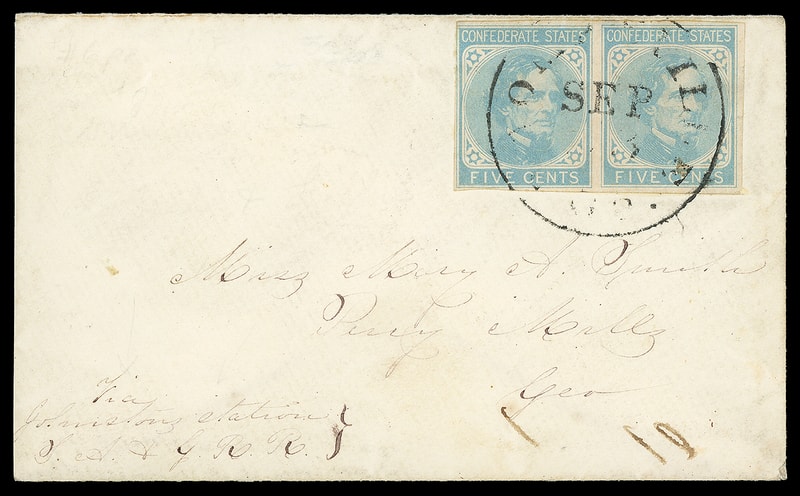 CONFEDERATE STATES CONFEDERATE STATES
SEP
FIVE CENTS FIVE CENTS
Miss Mary A. Smith
Percy Mills
Geo
Via
Johnstons station
S. A. & G. R. R.
10